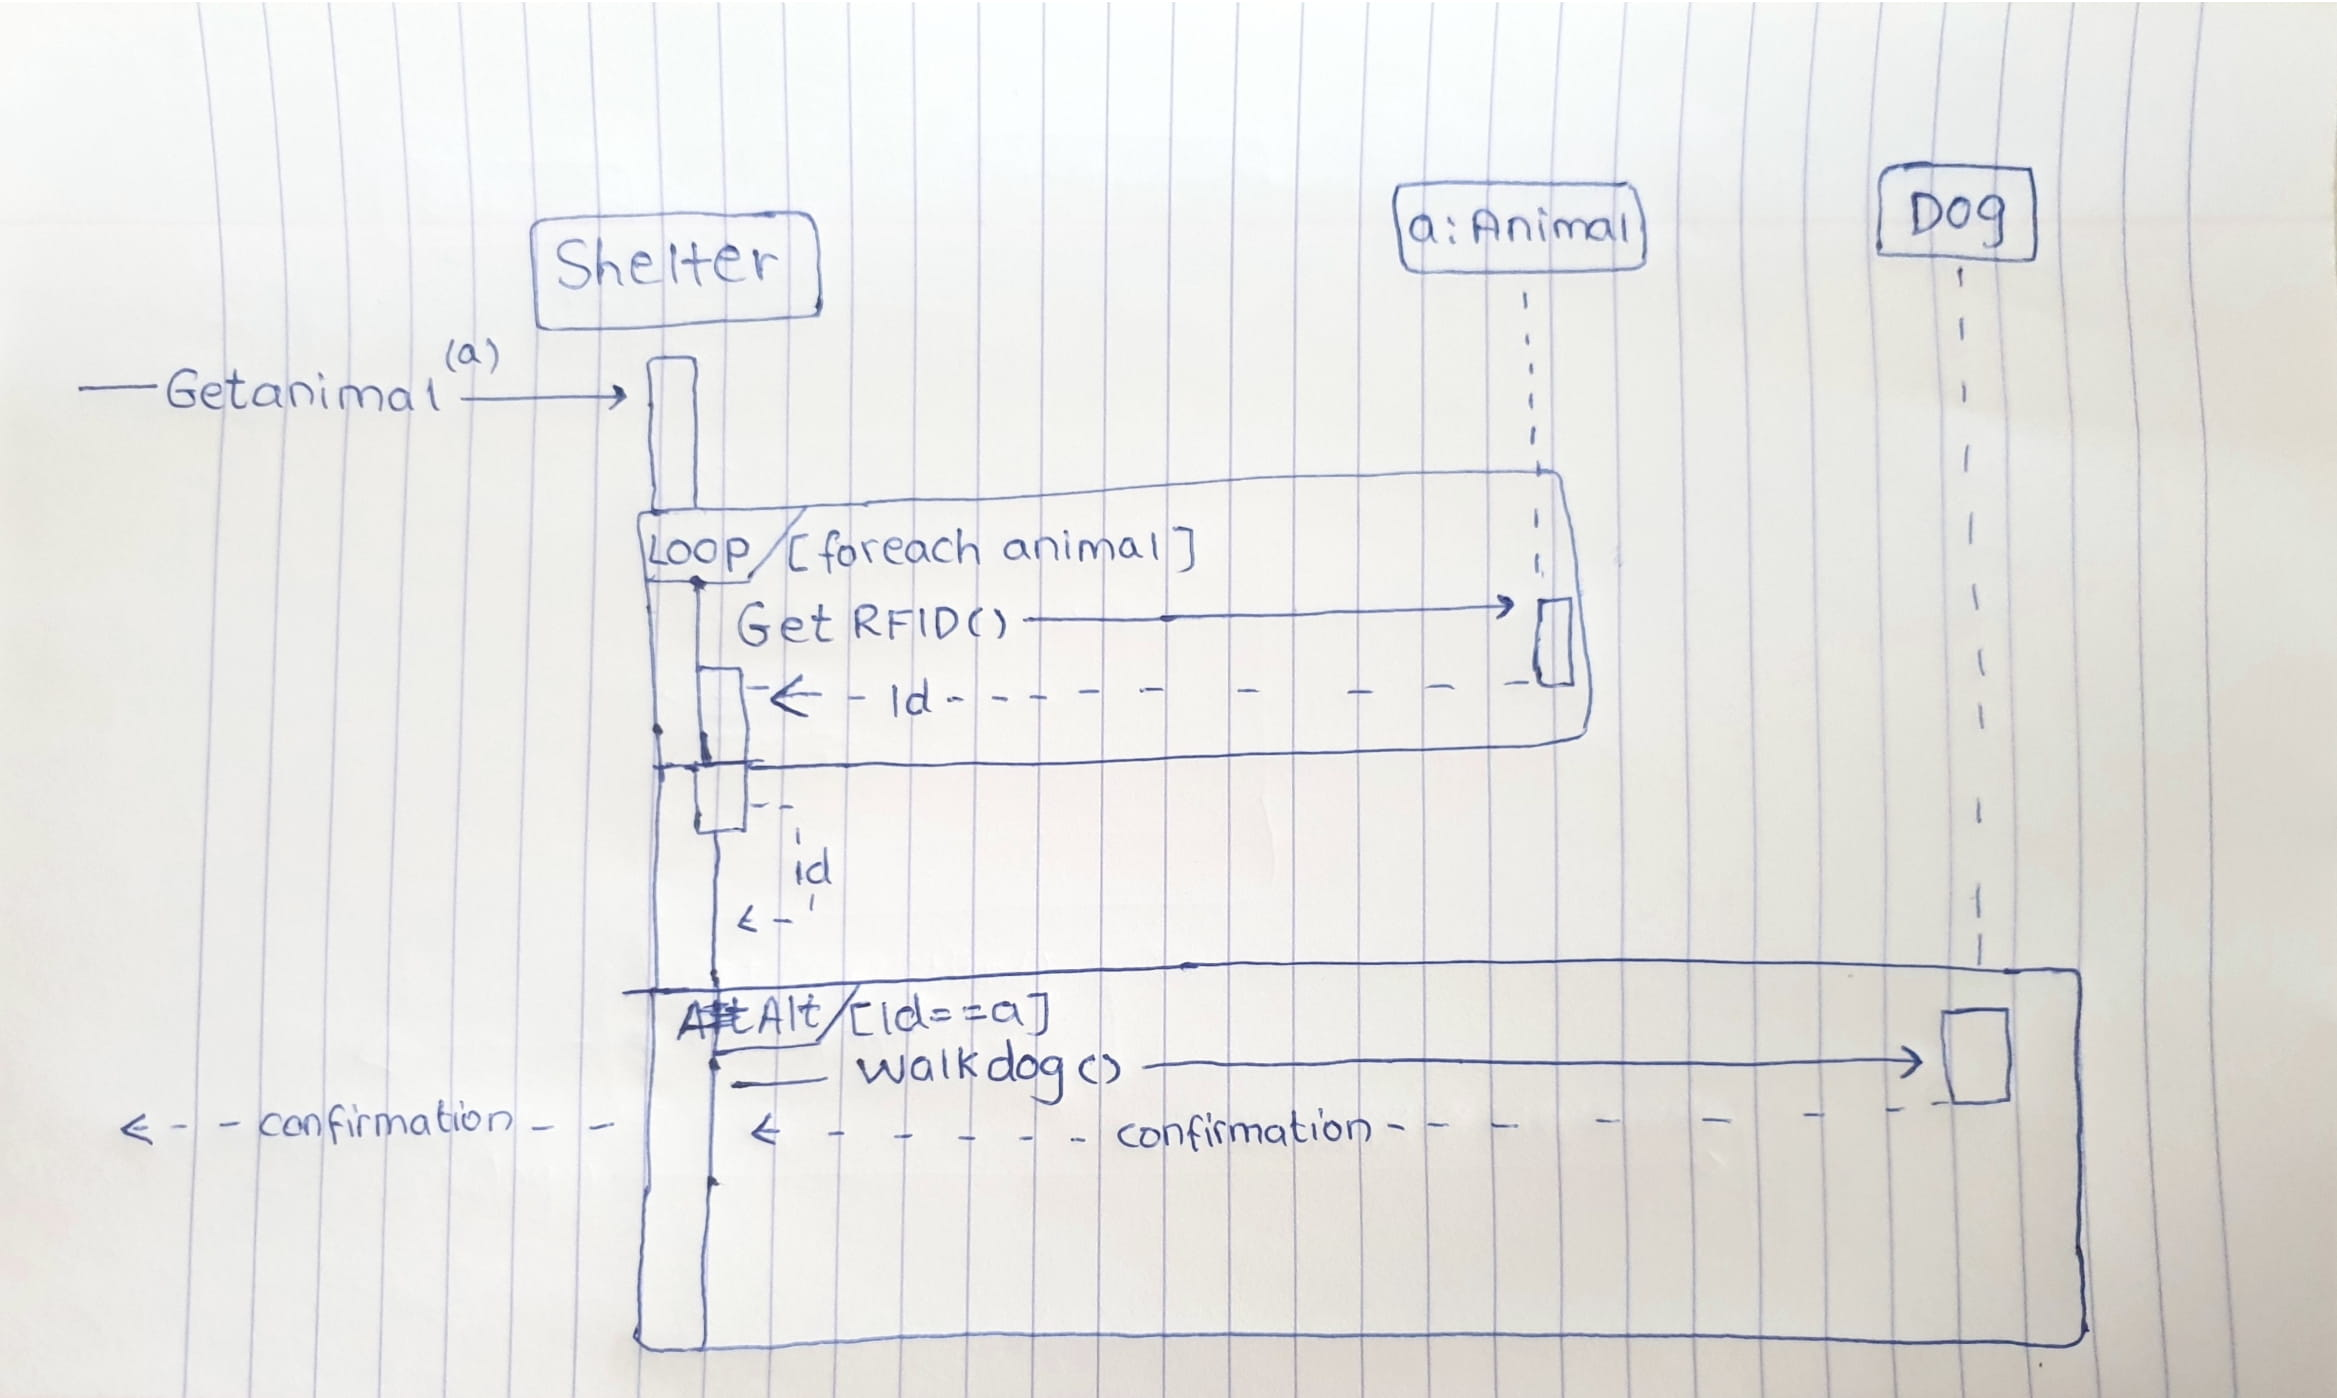 Shelter
a: Animal
Dog
Getanimal (a)
LOOP [foreach animal]
Get RFID()
Id
id
Alt [Id==a]
walkdog()
confirmation
confirmation